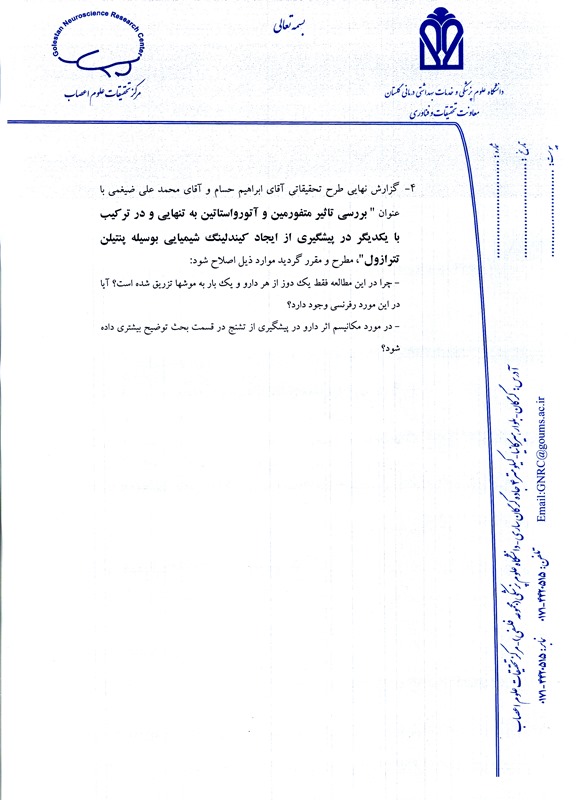 بسمه تعالی
Golestan Neuroscience Research Center
مرکز تحقیقات علوم اعصاب
دانشگاه علوم پزشکی و خدمات بهداشتی درمانی گلستان
معاونت تحقیقات و فناوری
شماره:
تاریخ:
پیوست:
۴- گزارش نهایی طرح تحقیقاتی آقای ابراهیم حسام و آقای محمد علی ضیغمی با
عنوان " بررسی تاثیر متفورمین و آتورواستاتین به تنهایی و در ترکیب
با یکدیگر در پیشگیری از ایجاد کیندلینگ شیمیایی بوسیله پنتیلن
تترازول"، مطرح و مقرر گردید موارد ذیل اصلاح شود:
- چرا در این مطالعه فقط یک دوز از هر دارو و یک بار به موشها تزریق شده است؟ آیا
در این مورد رفرنسی وجود دارد؟
- در مورد مکانیسم اثر دارو در پیشگیری از تشنج در قسمت بحث توضیح بیشتری داده
شود؟
آدرس: گرگان- بلوار هیرکانیا- کیلومتر ۲ جاده گرگان ساری- دانشگاه علوم پزشکی (مجموعه فلسفی)- مرکز تحقیقات علوم اعصاب
تلفن: ۴۴۲۰۵۱۵-۰۱۷۱ نمابر: ۴۴۲۰۵۱۵-۰۱۷۱
Email:GNRC@goums.ac.ir